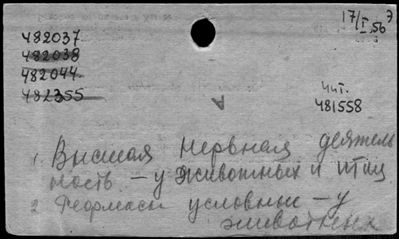 17/I 56
482037
482038
482044
482355
Чит.
481558
А
1. Высшая нервная деятель
ность – у животных и птиц
2 Рефлексы условные – у
животных